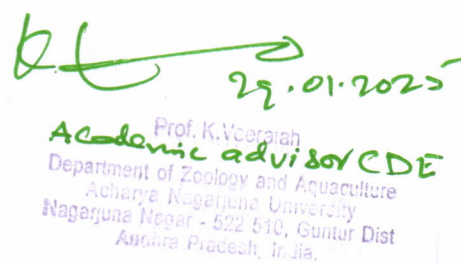 29.01.2025
Prof. K.Veeraiah
Academic advisor CDE
Department of Zoology and Aquaculture
Acharya Nagarjuna University
Nagarjuna Nagar - 522 510, Guntur Dist
Andhra Pradesh, India.